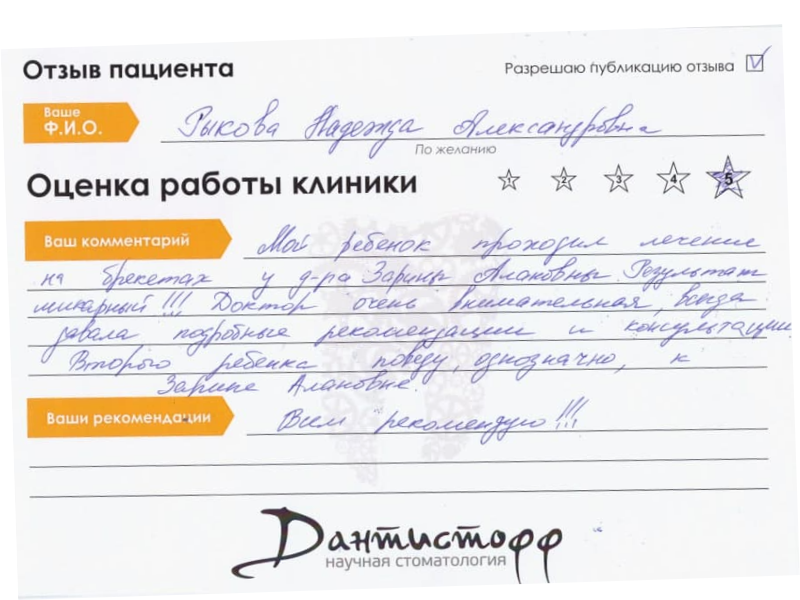 Отзыв пациента
Разрешаю публикацию отзыва
Ваше
Ф.И.О.
Рыкова Надежда Александровна
По желанию
Оценка работы клиники
1 2 3 4 5
Ваш комментарий
Мой ребенок проходил лечение
на брекетах у д-ра Зарины Алановны. Результат
шикарный!!! Доктор очень внимательная, всегда
давала подробные рекомендации и консультации.
Второго ребенка поведу, однозначно, к
Зарине Алановне.
Ваши рекомендации
Всем рекомендую!!!
Дантистофф
научная стоматология